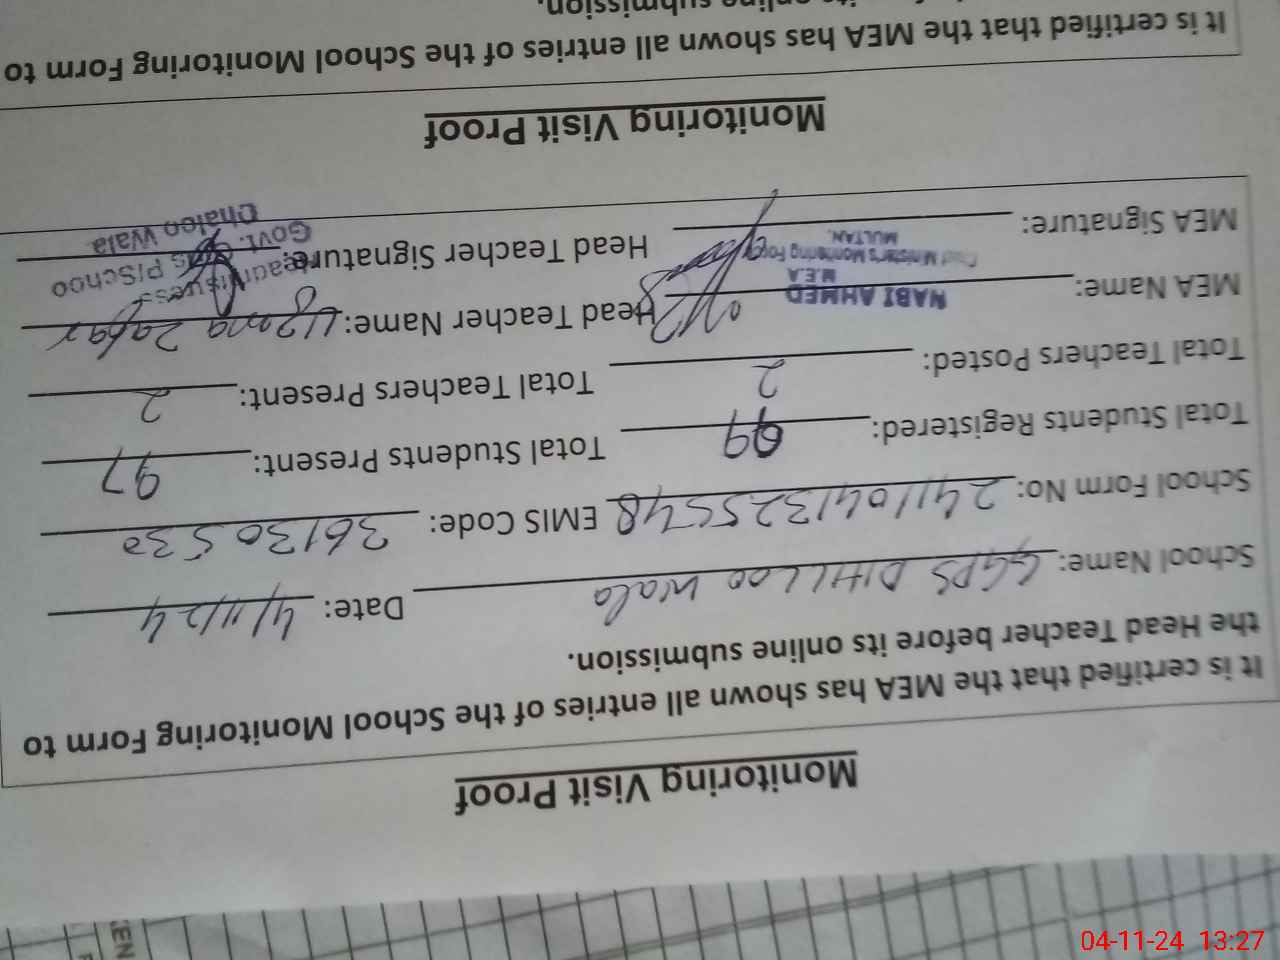 Monitoring Visit Proof
It is certified that the MEA has shown all entries of the School Monitoring Form to
the Head Teacher before its online submission.
School Name: GGPS DHILLOO Wala Date: 4/11/24
School Form No: 2411041325548 EMIS Code: 36130530
Total Students Registered: 99 Total Students Present: 97
Total Teachers Posted: 2 Total Teachers Present: 2
MEA Name: NABI AHMED Head Teacher Name: Uzma Zafar
M.E.A
Chief Minister's Monitoring Force
MULTAN.
MEA Signature: Head Teacher Signature:
Govt. P/School
Wala
Monitoring Visit Proof
It is certified that the MEA has shown all entries of the School Monitoring Form to
its online submission.
04-11-24 13:27